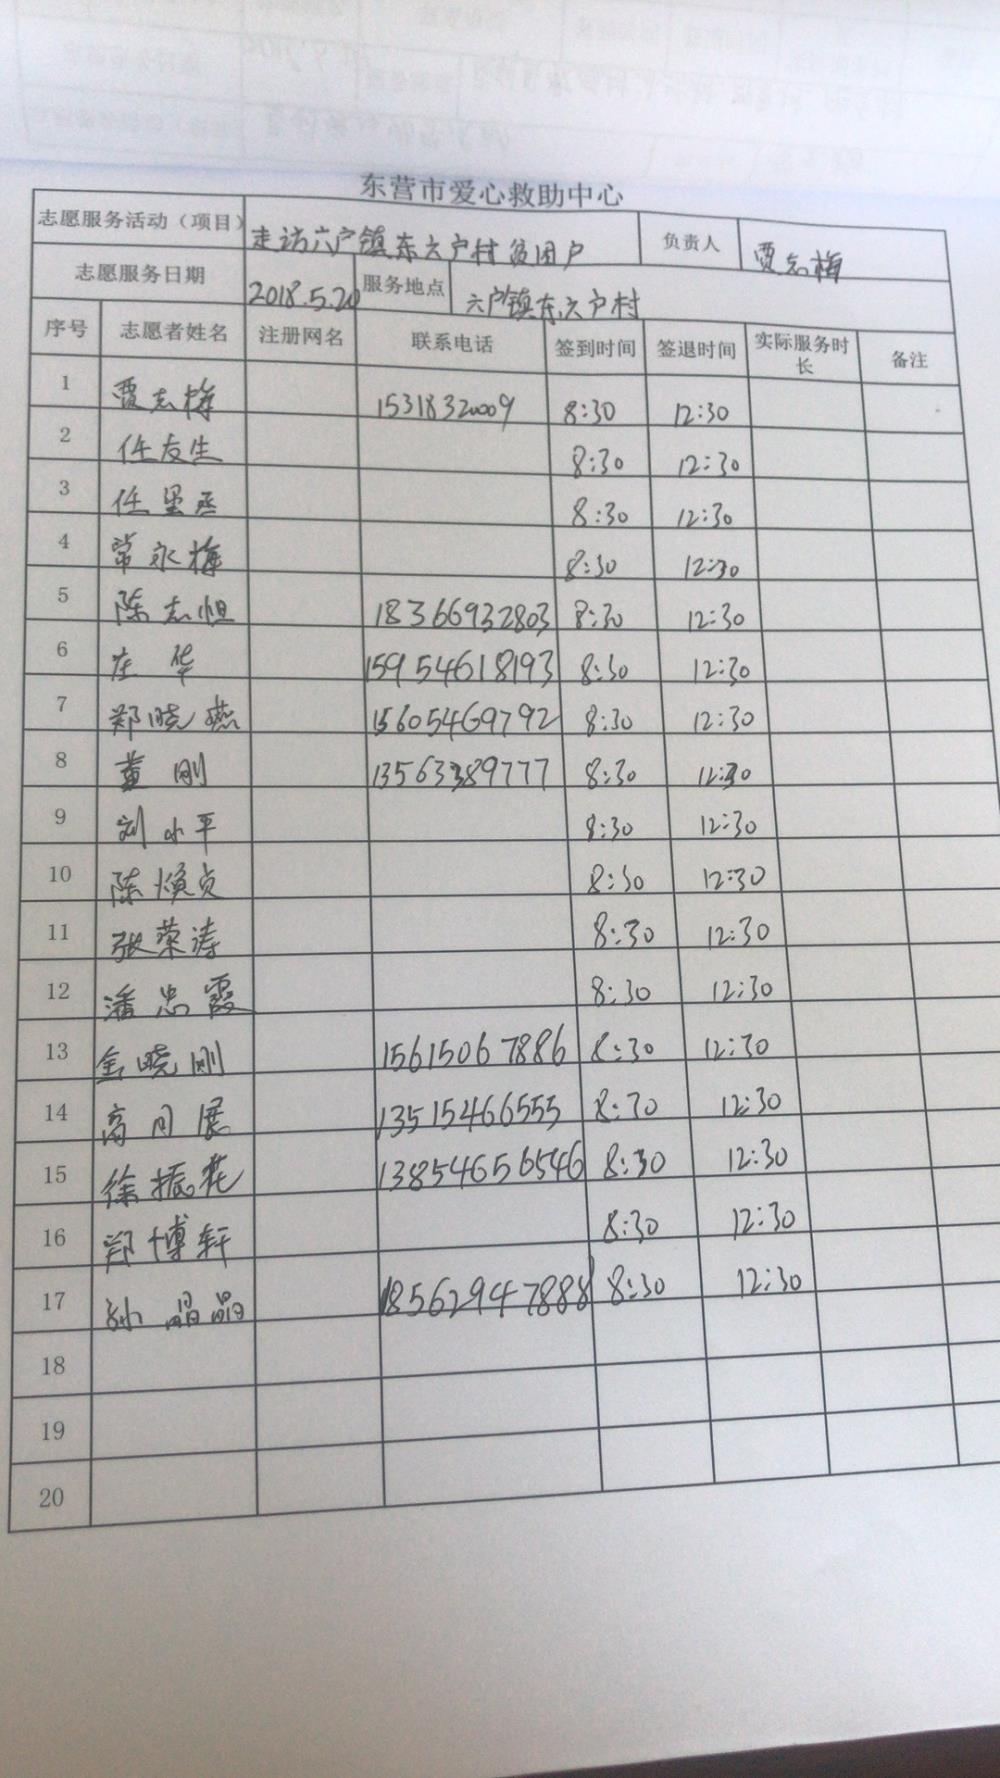 东营市爱心救助中心
志愿服务活动（项目） 走访六户镇东六户村贫困户 负责人 贾志梅
志愿服务日期 2018.5.20 服务地点 六户镇东六户村
序号 志愿者姓名 注册网名 联系电话 签到时间 签退时间 实际服务时长 备注
1 贾志梅 15318320009 8:30 12:30
2 任友生 8:30 12:30
3 任 8:30 12:30
4 常永梅 8:30 12:30
5 陈志恒 18366932803 8:30 12:30
6 庄华 15954618193 8:30 12:30
7 郑晓燕 15605469792 8:30 12:30
8 黄刚 13563389777 8:30 12:30
9 刘小平 8:30 12:30
10 陈焕贞 8:30 12:30
11 张荣涛 8:30 12:30
12 潘忠霞 8:30 12:30
13 金晓刚 15615067886 8:30 12:30
14 高月展 13515466555 8:30 12:30
15 徐振花 13854656546 8:30 12:30
16 郑博轩 8:30 12:30
17 孙晶晶 18562947888 8:30 12:30
18
19
20